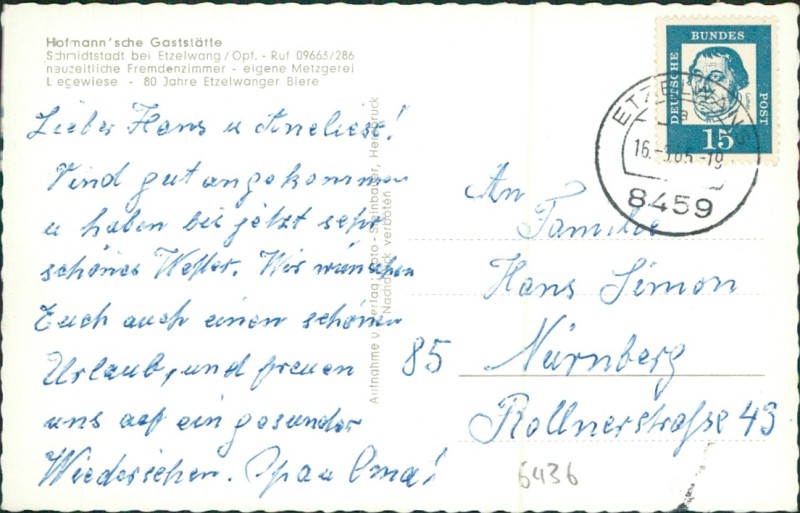 Hofmann'sche Gaststätte
Schmidtstadt bei Etzelwang/Opf. - Ruf 09663/286
neuzeitliche Fremdenzimmer - eigene Metzgerei
Liegewiese - 80 Jahre Etzelwanger Biere
Lieber Hans u Aneliese!
Sind gut angekommen
u haben bis jetzt sehr
schönes Wetter. Wir wünschen
Euch auch einen schönen
Urlaub, und freuen
uns auf ein gesundes
Wiedersehen. Opa u Oma!
Aufnahme u. Verlag: Foto - Steinbauer, Hersbruck
Nachdruck verboten
DEUTSCHE
BUNDES
POST
15
ETZELWANG
8459
An
Familie
Hans Simon
85 Nürnberg
Rollnerstraße 43
6436